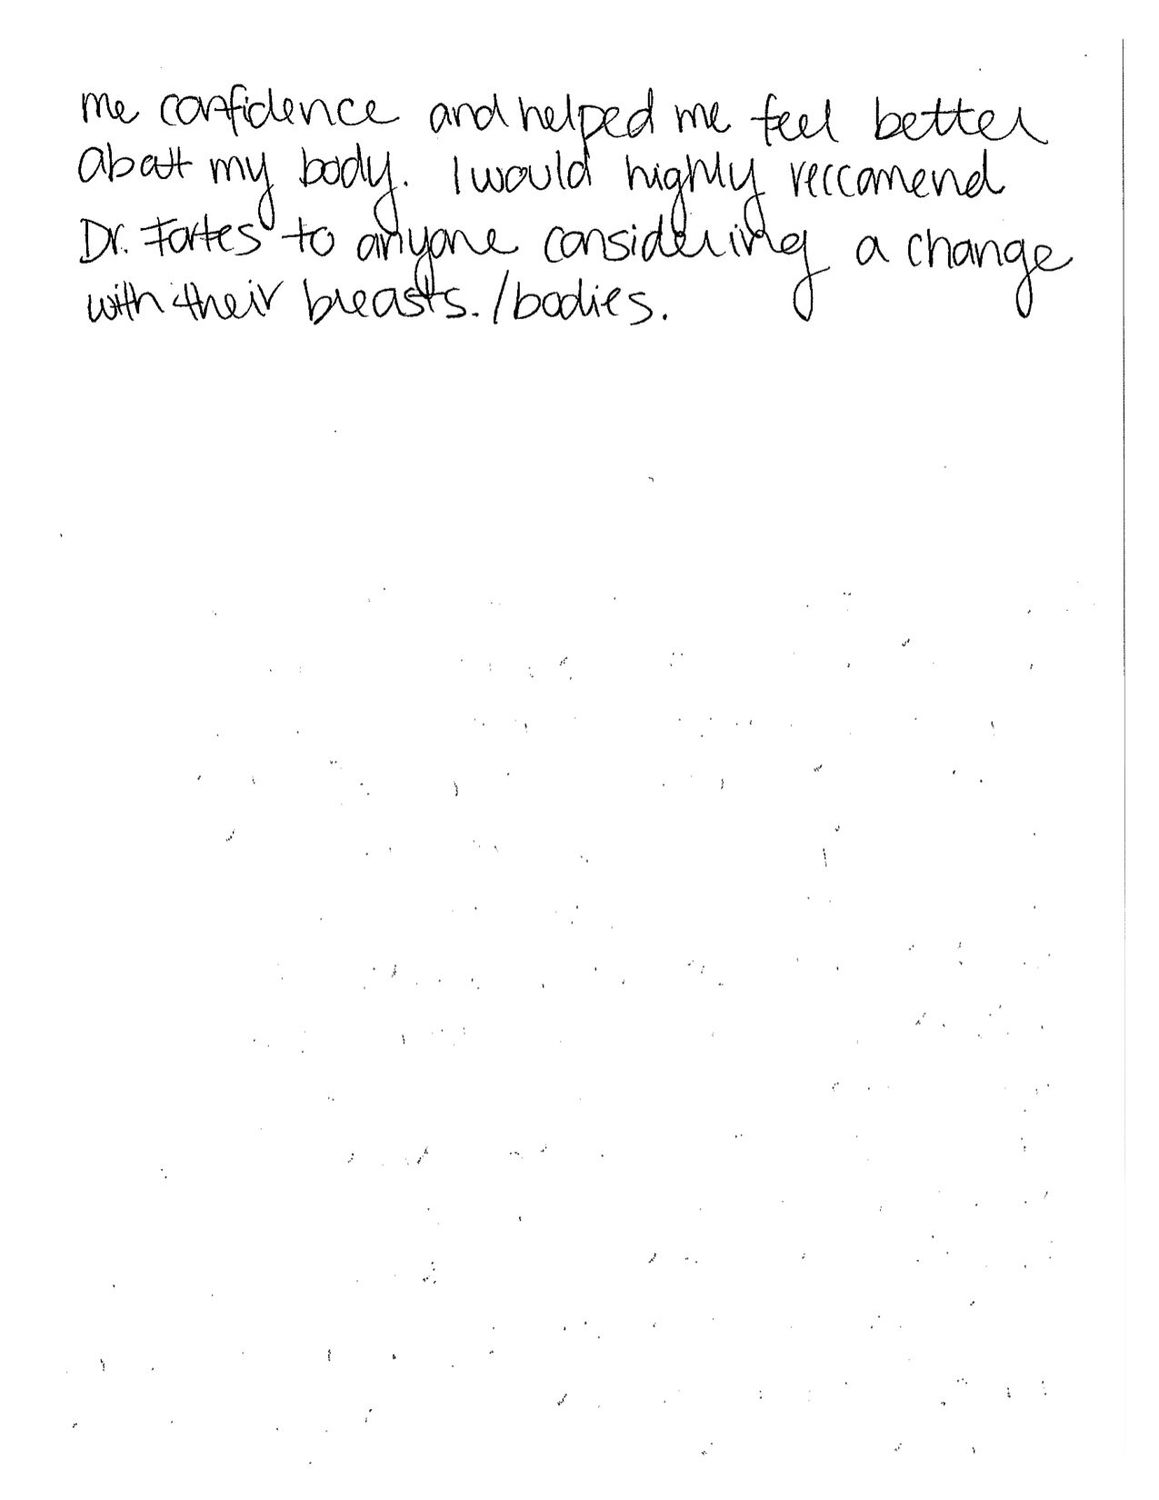 me confidence and helped me feel better
about my body. I would highly reccomend
Dr. Fortes to anyone considering a change
with their breasts./bodies.